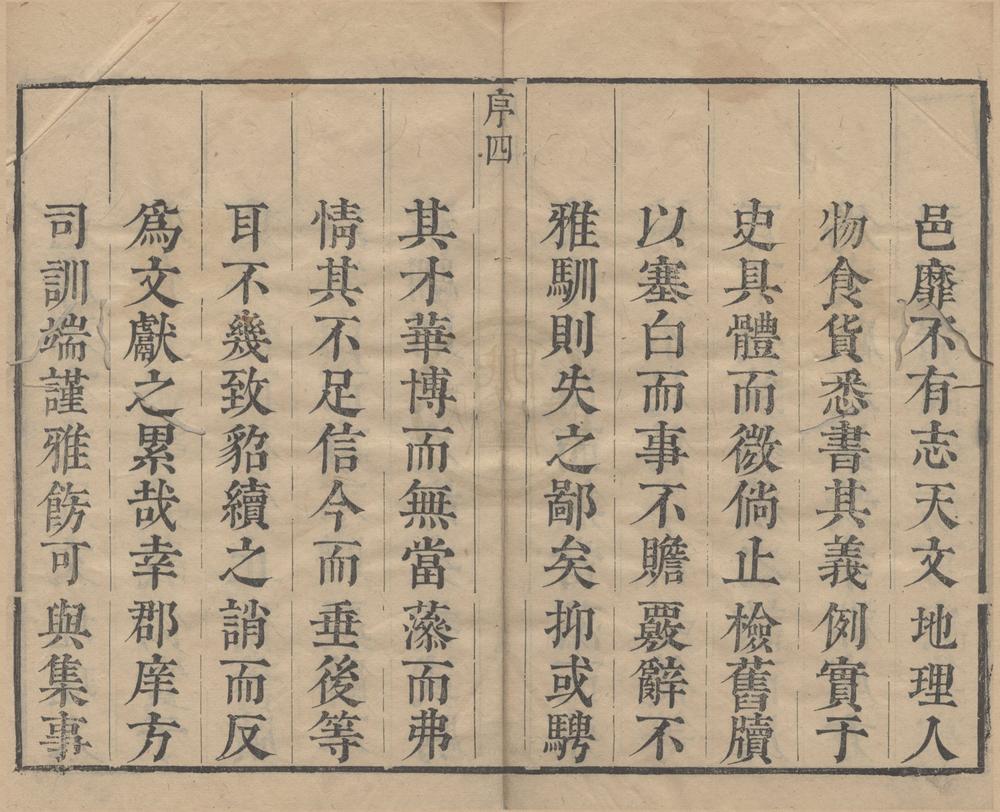 邑靡不有志天文地理人
物食貨悉書其義例實于
史具體而微倘止檢舊牘
以塞白而事不贍覈辭不
雅馴則失之鄙矣抑或騁
序四
其才華博而無當藻而弗
情其不足信今而垂後等
耳不幾致貂續之誚而反
為文獻之累哉幸郡庠方
司訓端謹雅飭可與集事